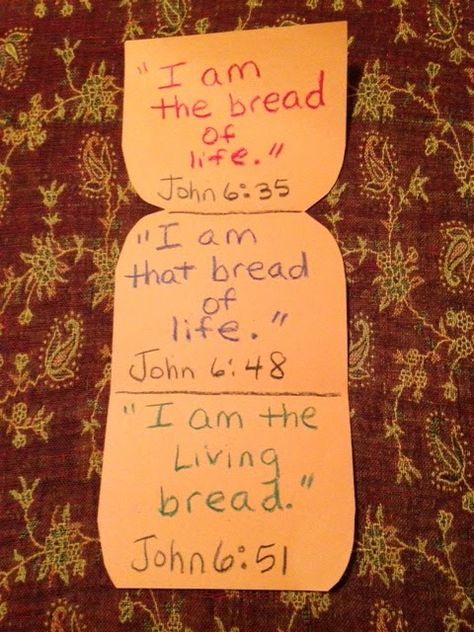 "I am
the bread
of
life."
John 6:35
"I am
that bread
of
life."
John 6:48
"I am the
Living
bread."
John 6:51